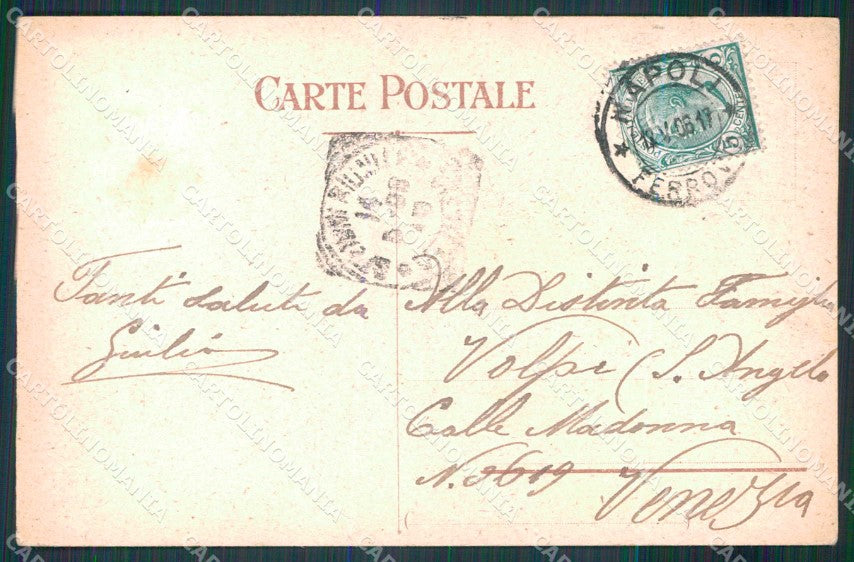 CARTE POSTALE
NAPOLI
FERROV
Tanti saluti da
Giulio
Alla Distinta Famiglia
Volpi (S. Angelo
Calle Madonna
N. 3619
Venezia
CARTOLINOMANIA